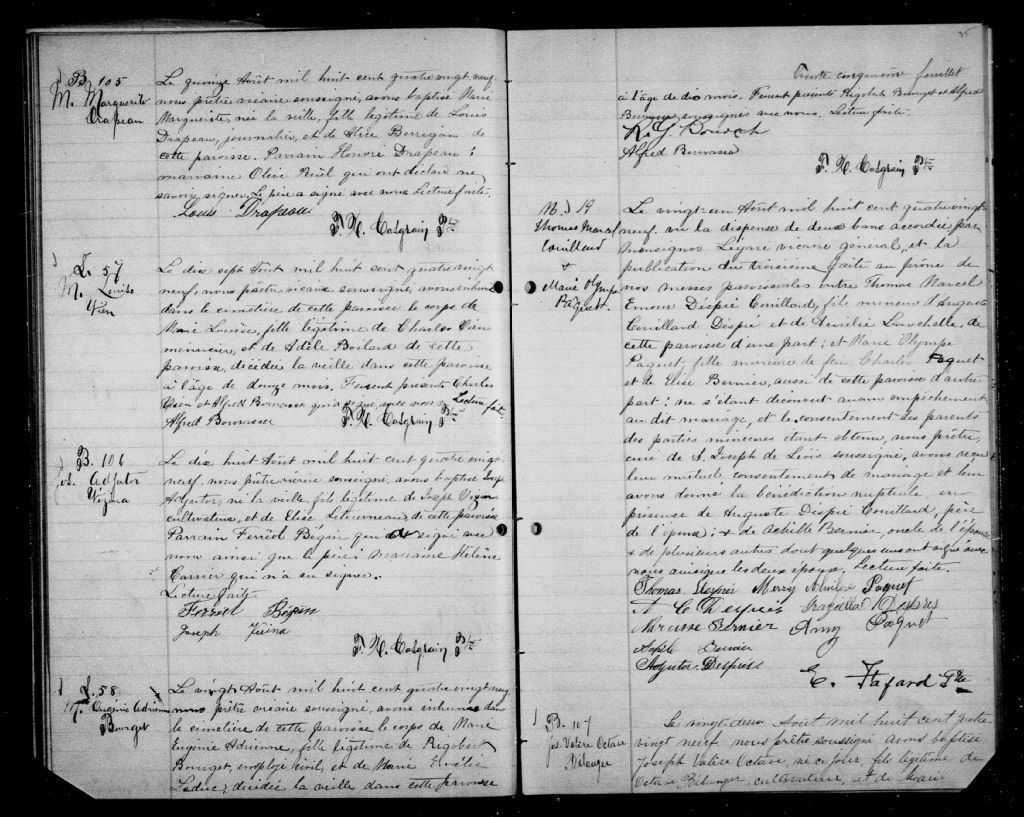 B. 105
M. Marguerite
Drapeau
Le quinze Août mil huit cent quatre vingt neuf
nous prêtre vicaire soussigné, avons baptisé Marie
Marguerite, née la veille, fille légitime de Louis
Drapeau, journalier, et de Alice Berrigan de
cette paroisse. Parrain Honoré Drapeau ;
marraine Olive Ruël qui ont déclaré ne
savoir signer. Le père a signé avec nous. Lecture faite.
Louis Drapeau
F. X. Casgrain Ptre
S. 57
M. Louise
Vien
Le dix sept Août mil huit cent quatre vingt
neuf, nous prêtre vicaire soussigné, avons inhumé
dans le cimetière de cette paroisse le corps de
Marie Louise, fille légitime de Charles Vien
menuisier, et de Adèle Boilard de cette
paroisse, décédée la veille dans cette paroisse
à l'âge de douze mois. Furent présents Charles
Vien et Alfred Bourassa qui a signé avec nous. Lecture faite.
Alfred Bourassa
F. X. Casgrain Ptre
B. 106
Jos. Adjutor
Vézina
Le dix huit Août mil huit cent quatre vingt
neuf, nous prêtre vicaire soussigné, avons baptisé Joseph
Adjutor, né la veille, fils légitime de Joseph Vézina
cultivateur, et de Elise Létourneau, de cette paroisse
Parrain Ferréol Bégin qui a signé avec
nous ainsi que le père ; marraine Hélène
Carrier qui n'a su signer.
Lecture faite
Ferréol Bégin
Joseph Vésina
F. X. Casgrain Ptre
S. 58
M. Eugénie Adrienne
Bourget
Le vingt Août mil huit cent quatre vingt neuf
nous prêtre vicaire soussigné, avons inhumé dans
le cimetière de cette paroisse le corps de Marie
Eugénie Adrienne, fille légitime de Rigobert
Bourget, employé civil, et de Marie Emélie
Leduc, décédée la veille dans cette paroisse
Trente cinquième feuillet
à l'âge de dix mois. Furent présents Rigobert Bourget et Alfred
Bourassa soussignés avec nous. Lecture faite.
Alfred Bourassa
F. X. Casgrain Ptre
M. 19
Thomas Marcel
Couillard
+
Marie Olympe
Paquet.
Le vingt-un Août mil huit cent quatre vingt-
neuf, vu la dispense de deux bans accordée par
Monseignor Legaré vicaire général, et la
publication du troisième faite au prône de
nos messes paroissiales entre Thomas Marcel
Emour Dispré Couillard, fils mineur d'Auguste
Couillard Després et de Aurélie Larochelle, de
cette paroisse d'une part ; et Marie Olympe
Paquet, fille mineure de feu Charles Paquet
et de Elise Bernier, aussi de cette paroisse d'autre
part : ne s'étant découvert aucun empêchement
au dit mariage, et le consentement des parents
des parties mineures étant obtenu, nous prêtre,
curé de St Joseph de Lévis soussigné, avons reçu
leur mutuel consentement de mariage et leur
avons donné la bénédiction nuptiale, en
présence de Auguste Dispré Couillard, père
de l'époux ; & de Achille Bernier, oncle de l'épouse
& de plusieurs autres dont quelques uns ont signé avec
nous ainsi que les deux époux. Lecture faite.
Thomas Després Merry Paquet
A C Després Després
Narcisse Bernier Anny Paquet
Bernier
Adjutor Després
E. Fafard Ptre
B. 107
Jos. Valère Octave
Bélanger
Le vingt-deux Août mil huit cent quatre
vingt neuf nous prêtre soussigné avons baptisé
Joseph Valère Octave, né ce jour, fils légitime de
Octave Bélanger, cultivateur, et de Marie